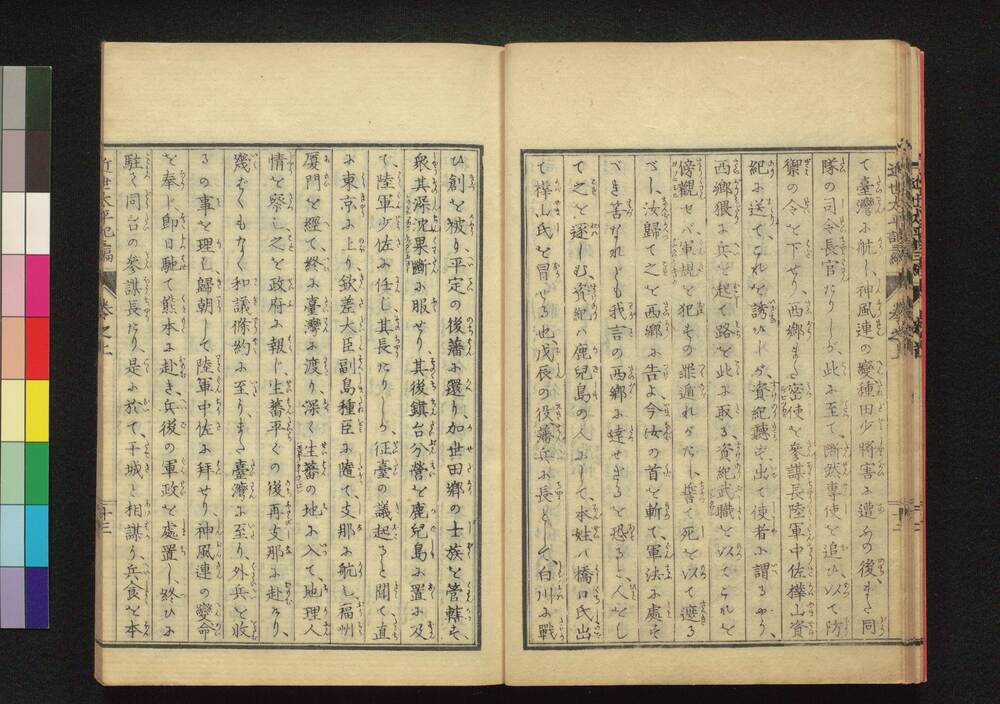 て臺灣に航し、神風連の變種田少將害に遭ふの後、また同
隊の司令長官たりしが、此に至て、斷然專使を追ひ、以て防
禦の令を下せり、西郷また密使を參謀長陸軍中佐樺山資
紀に送てこれを誘ひしが、資紀聽ず出て使者に謂るやう、
西郷猥に兵を起て路を此に取る、資紀武職を以てこれを
傍觀せバ軍規を犯すの罪遁れがたし、誓て死を以て遮る
べし、汝歸て之を西郷に告よ今汝の首を斬て、軍法に處す
べき筈なれども我言の西郷に達せざるを恐ると、人をし
て之を逐しむ、資紀ハ鹿兒島の人にして、本姓ハ橋口氏出
て樺山氏を冒せる也、戊辰の役藩兵に長として、白川に戰
ひ創を被り、平定の後藩に還り加世田郷の士族を管轄す、
衆其深沈果斷に服せり、其後鎮台分營を鹿兒島に置に及
て、陸軍少佐に任じ、其長たりしが、征臺の議起ると聞て、直
に東京に上り、欽差大臣副島種臣に隨て、支那に航し、福州
厦門を經て、終に臺灣に渡り、深く生蕃の地に入て、地理人
情を察し、之を政府に報じ、生蕃平ぐの後、再支那に赴けり、
幾ばくもなく和議條約に至り、また臺灣に至り、外兵を收
るの事を理し、歸朝して陸軍中佐に拜せり、神風連の變命
を奉じ、即日馳て熊本に赴き、兵後の軍政を處置し、終ひに
駐て同台の參謀長たり、是に於て、干城と相謀り、兵食を本
近世太平記 編
巻之上